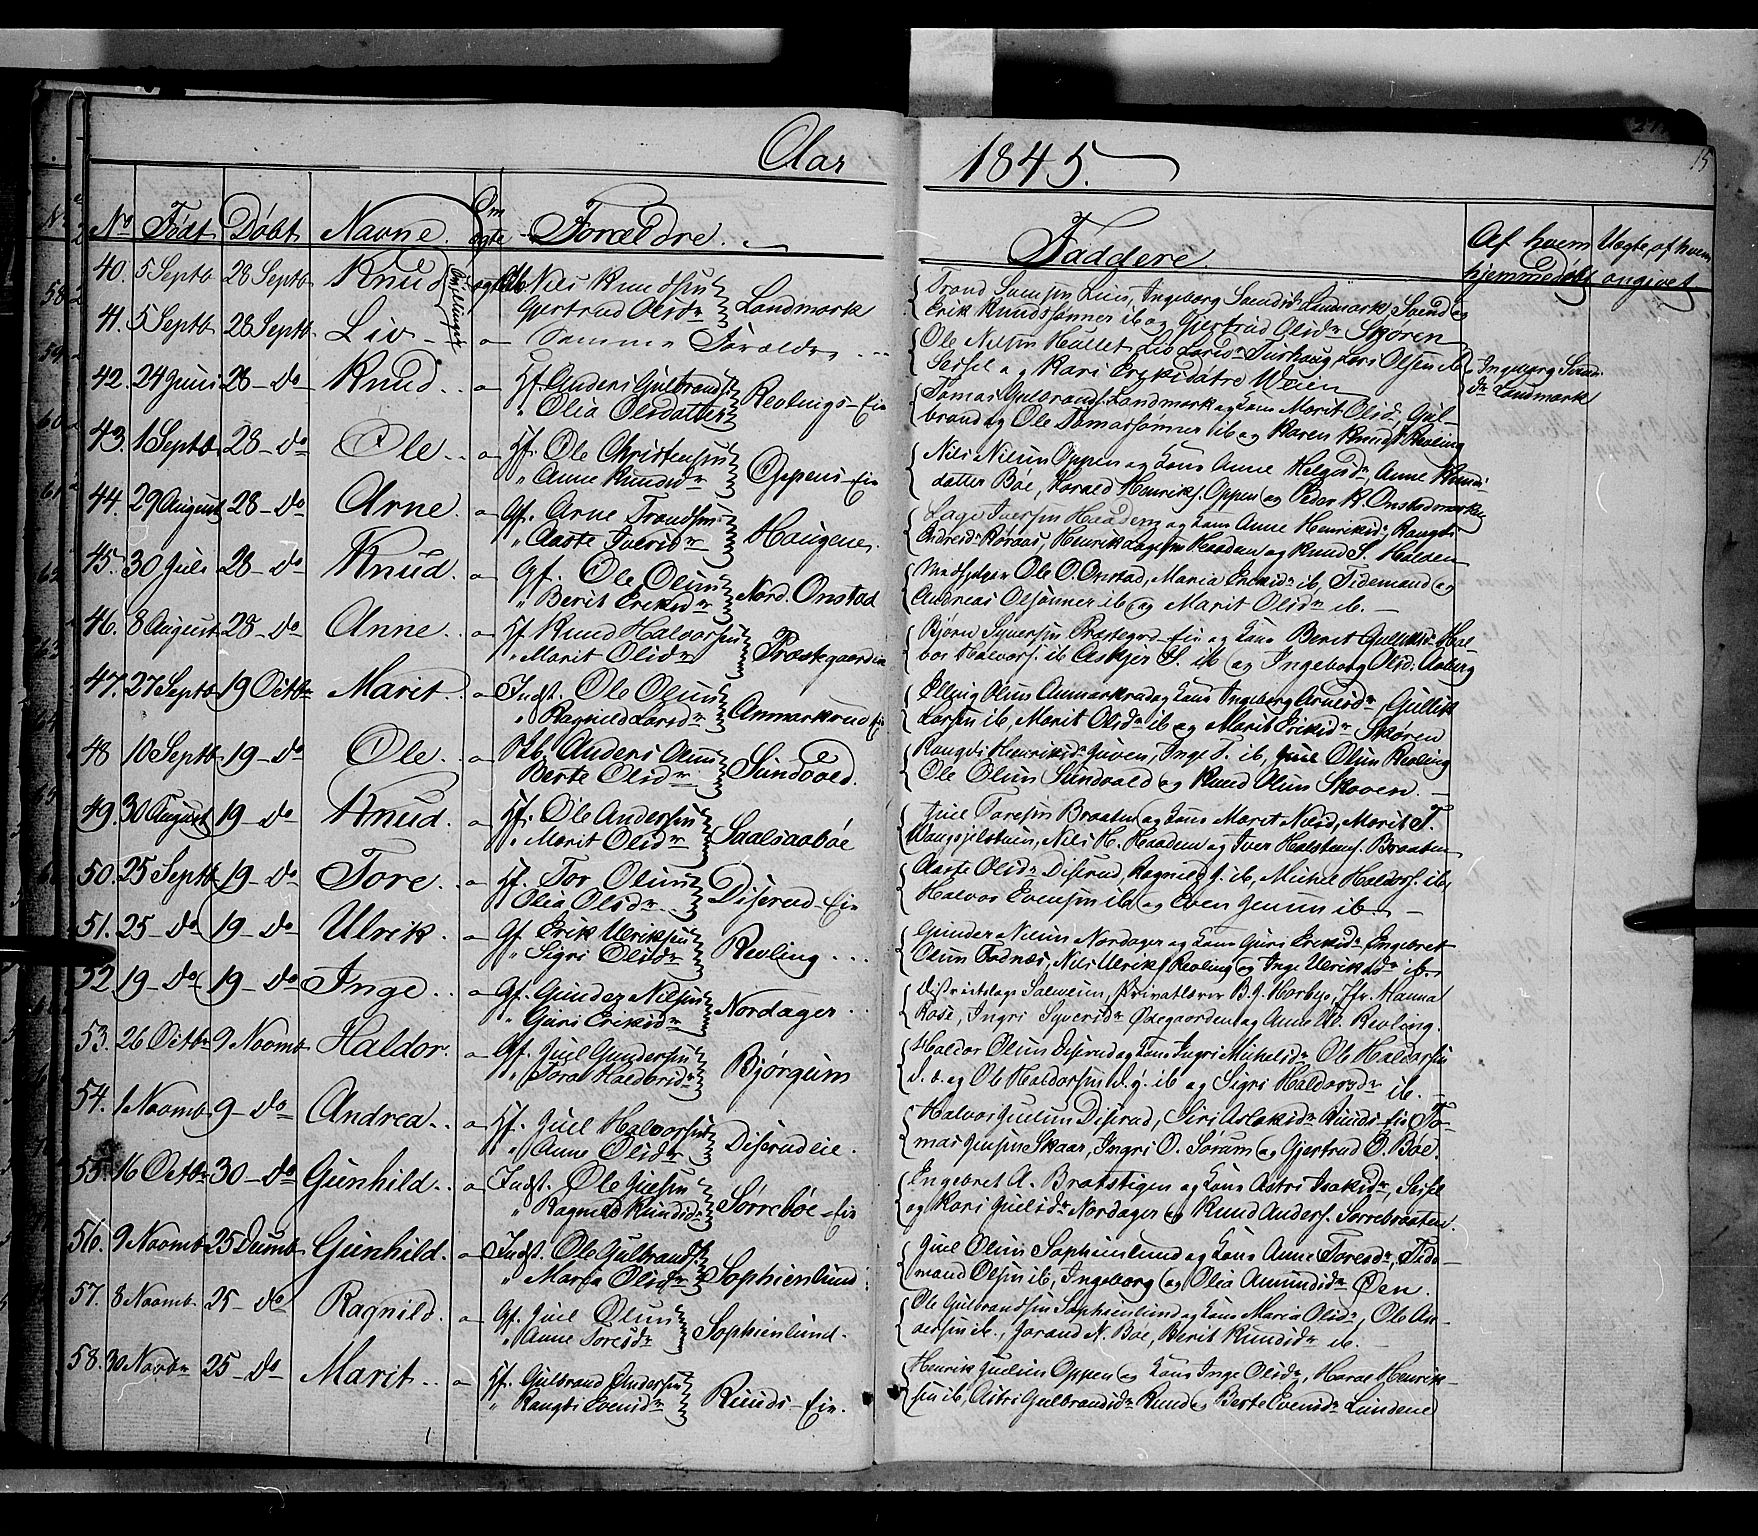 Aar 1845.
15
No Født Døbt Navne Om ægte Forældre. Faddere. Af hvem hjemmedøbt Uægte, af hvem angivet
40. 5 Septb 28 Septb Knud Tvillinger ægte Nils Knudsen
Gjertrud Olsdr Landmark
Trond Svensen Lien, Ingeborg Svendsdr Landmark, Svend og
Erik Knudssønner ib og Gjertrud Olsdr Skøren
41. 5 Septb 28 Septb Liv - Samme Forældre
Ole Nilsen Hullet, Liv Larsdr Turhaug, Lars Olsen ib
Seisel og Kari Eriksdøtre Weien
Ingeborg Svends
dr Landmark
42. 24 Juni 28 - do Knud - Hf. Anders Gulbrands
" Olia Olsdatter Revlings-Eie
Tomas Gulbrands. Landmark og Kone Marit Olsdr, Gul-
brand og Ole Tomassønner ib og Karen Knudsdr Revling
43. 1 Septb 28 - do Ole - Hf. Ole Christensen
" Anne Knudsdr Oppens-Eie
Nils Nilsen Oppen og Kone Anne Helgesdr, Anne Knuds-
datter Bøe, Harald Henriks. Oppen og Peder K. Onstadmarken
44. 29 August 28 - do Arne - Gf. Arne Trondsen
" Aaste Iversdr Haugene.
Lage Iversen Haadem og Kone Anne Henriksdr, Rangdi
Endresdr Røraas, Henrik Lagesen Haadem og Knud S. Halden
45. 30 Juli 28 - do Knud - Gf. Ole Olsen
" Berit Eriksdr Nord. Onstad
Ole O. Onstad, Maria Eriksdr ib, Tidemand og
Andreas Olssønner ib og Marit Olsdr ib.
46. 8 August 28 - do Anne - Hf. Knud Halvorsen
" Marit Olsdr Præstegaardseie
Bjørn Syversen Præstegrd-Eie og Kone Berit Gulliksdr Hal-
vor Halvors. ib Askjer S. ib og Ingeborg Olsd. Aaberg
47. 27 Septb 19 Octbr Marit - Indst. Ole Olsen
" Ragnild Larsdr Anmarkrud Eie
Elling Olsen Anmarkrud og Kone Ingeborg Arnesdr, Gullik
Larsen ib, Marit Olsdr ib og Marit Eriksdr Skøren
48 10 Septb 19 - do Ole - Anders Olsen
Berte Olsdr Sundvold.
Rangdi Henriksdr Juven, Inge T. ib, Juel Olsen Revling
Ole Olsen Sundvold og Knud Olsen Skoven.
49. 30 August 19 - do Knud - Hf. Ole Andersen
" Marit Olsdr Saalsaabøe
Juel Toresen Braaten og Kone Marit Nilsd, Marit T.
Nils H. Haadem og Iver Halstens. Braaten
50. 25 Septb 19 - do Tore - Hf. Tor Olsen
Olia Olsdr Diserud-Eie
Aaste Olsdr Diserud, Ragnild J. ib, Michel Haldors. ib,
Halvor Evensen ib og Even Jensen ib
51. 25 - do 19 - do Ulrik - Gf. Erik Ulriksen
" Sigri Olsdr Revling
Gunder Nilsen Nordager og Kone Guri Eriksdr Engebret
Olsen Fodnæs, Nils Ulriks. Revling og Inge Ulriksdr ib
52 19 - do 19 - do Inge - Gf. Gunder Nilsen
" Guri Eriksdr Nordager
Districtslæge Privatlærer B. J. Horbye, Jfr. Hanna
Rose, Ingri Syversdr Ødegaarden og Anne Revling.
53. 26 Octbr 9 Novmb Haldor - Gf. Juel Gundersen
" Tora Haldorsdr Bjørgum
Haldor Olsen Diserud og Kone Ingri Mikelsdr Ole Haldorsen
d. e. og Ole Haldorsen d. y. ib og Sigri Haldorsdr ib.
54. 1 Novmb 9 - do Andrea - Hf. Juel Halvorsen
" Anne Olsdr Diserudeie.
Halvor Juelsen Diserud, Siri Aslaksdr Ruuds-Eie To-
mas Jensen Skaar, Ingri O. Sørum og Gjertrud O. Bøe.
55. 16 Octbr 30 - do Gunhild - Indst. Ole Juelsen
" Ragnild Knudsdr Sørrebøe-Eie
Engebret A. Bratstigen og Kone Astri Isaksdr, Seisel
og Kari Juelsdr Nordager og Knud Anders. Sørrebraaten.
56. 9 Novmb 25 Decmb Gunhild - Indst. Ole Gulbrands.
" Maria Olsdr Sophienlund
Juel Olsen Sophienlund og Kone Anne Toresdr, Tide-
mand Olsen ib, Ingeborg og Olia Amundsdr Øen.
57. 8 Novmb 25 - do Ragnild - Gf. Juel Olsen
" Anne Toresdr Sophienlund.
Ole Gulbrandsen Sophienlund og Kone Maria Olsdr, Ole An-
dersen ib., Jorand N. Bøe, Berit Knudsdr ib.
58. 30 Novbr 25 - do Marit - Hf. Gulbrand Andersen
" Rangdi Evensdr Ruuds-Eie.
Henrik Juelsen Oppen og Kone Inge Olsdr, Harae Henrik-
sen ib, Astri Gulbrandsdr Ruud og Berte Evensdr Lundene